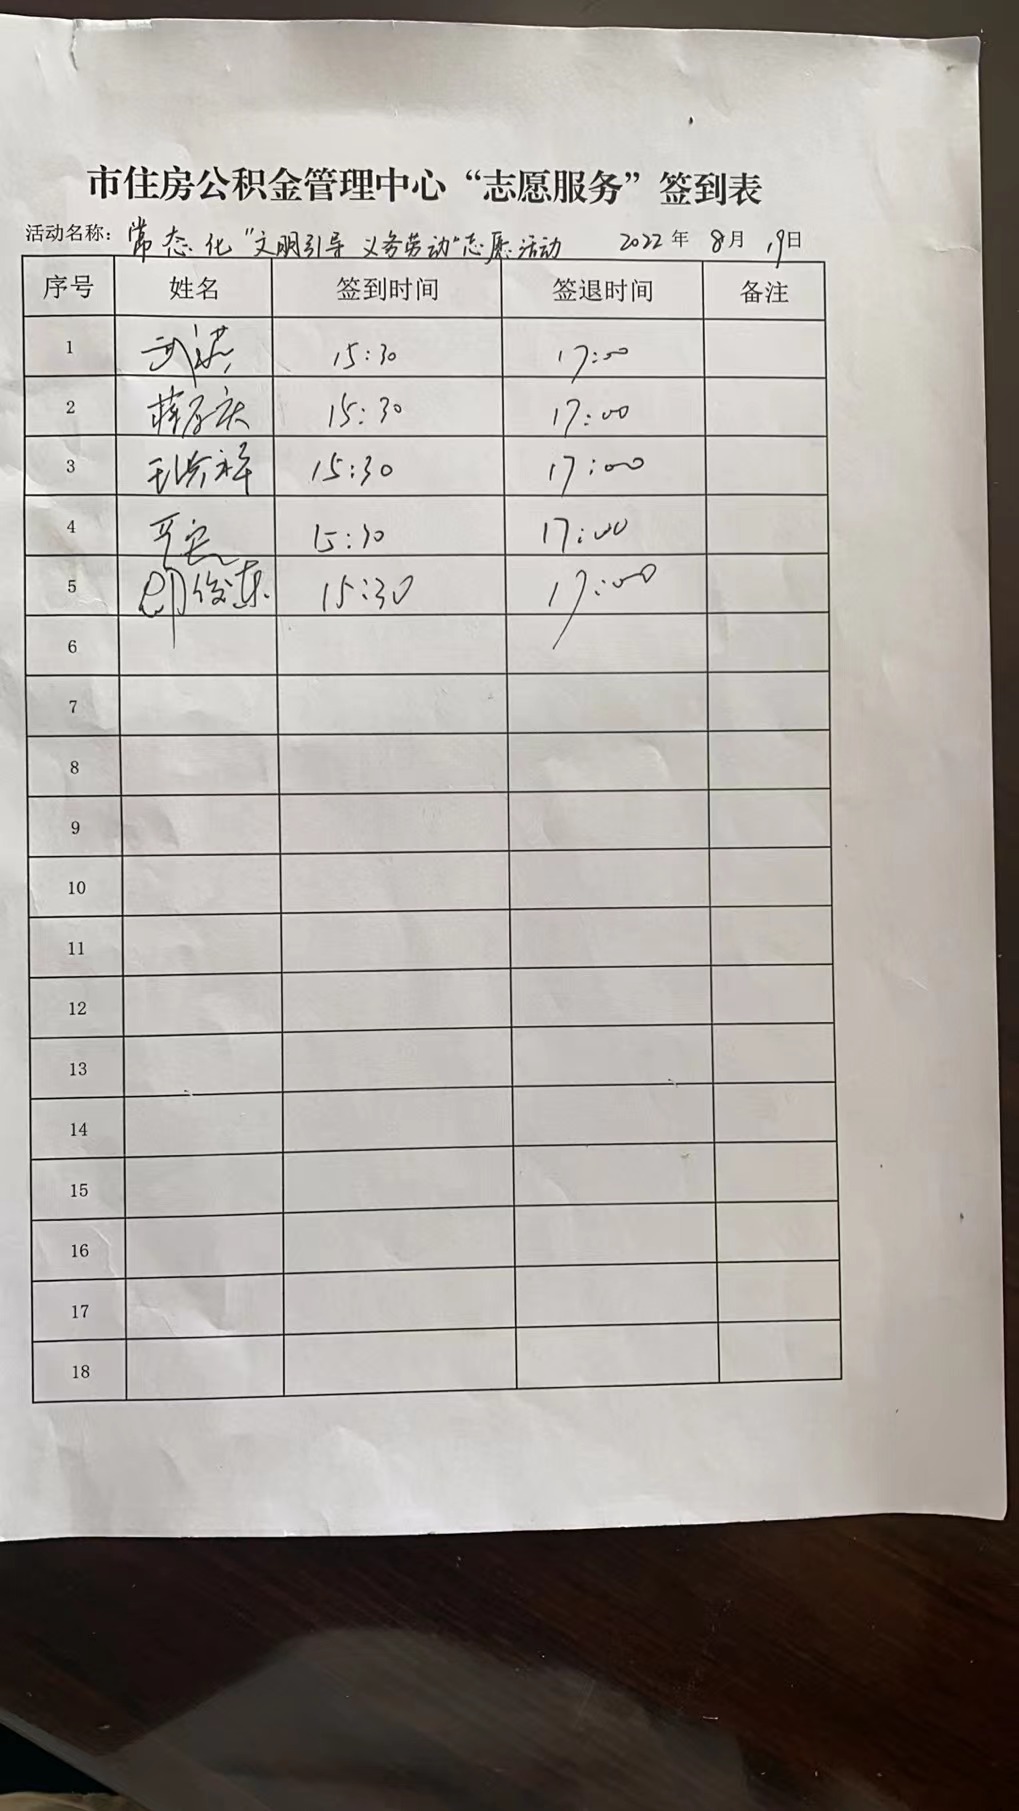 市住房公积金管理中心“志愿服务”签到表
活动名称：常态化“文明引导 义务劳动”志愿活动 2022年 8月 19日
序号 姓名 签到时间 签退时间 备注
1 15:30 17:00
2 15:30 17:00
3 15:30 17:00
4 平安 15:30 17:00
5 15:30 17:00
6
7
8
9
10
11
12
13
14
15
16
17
18